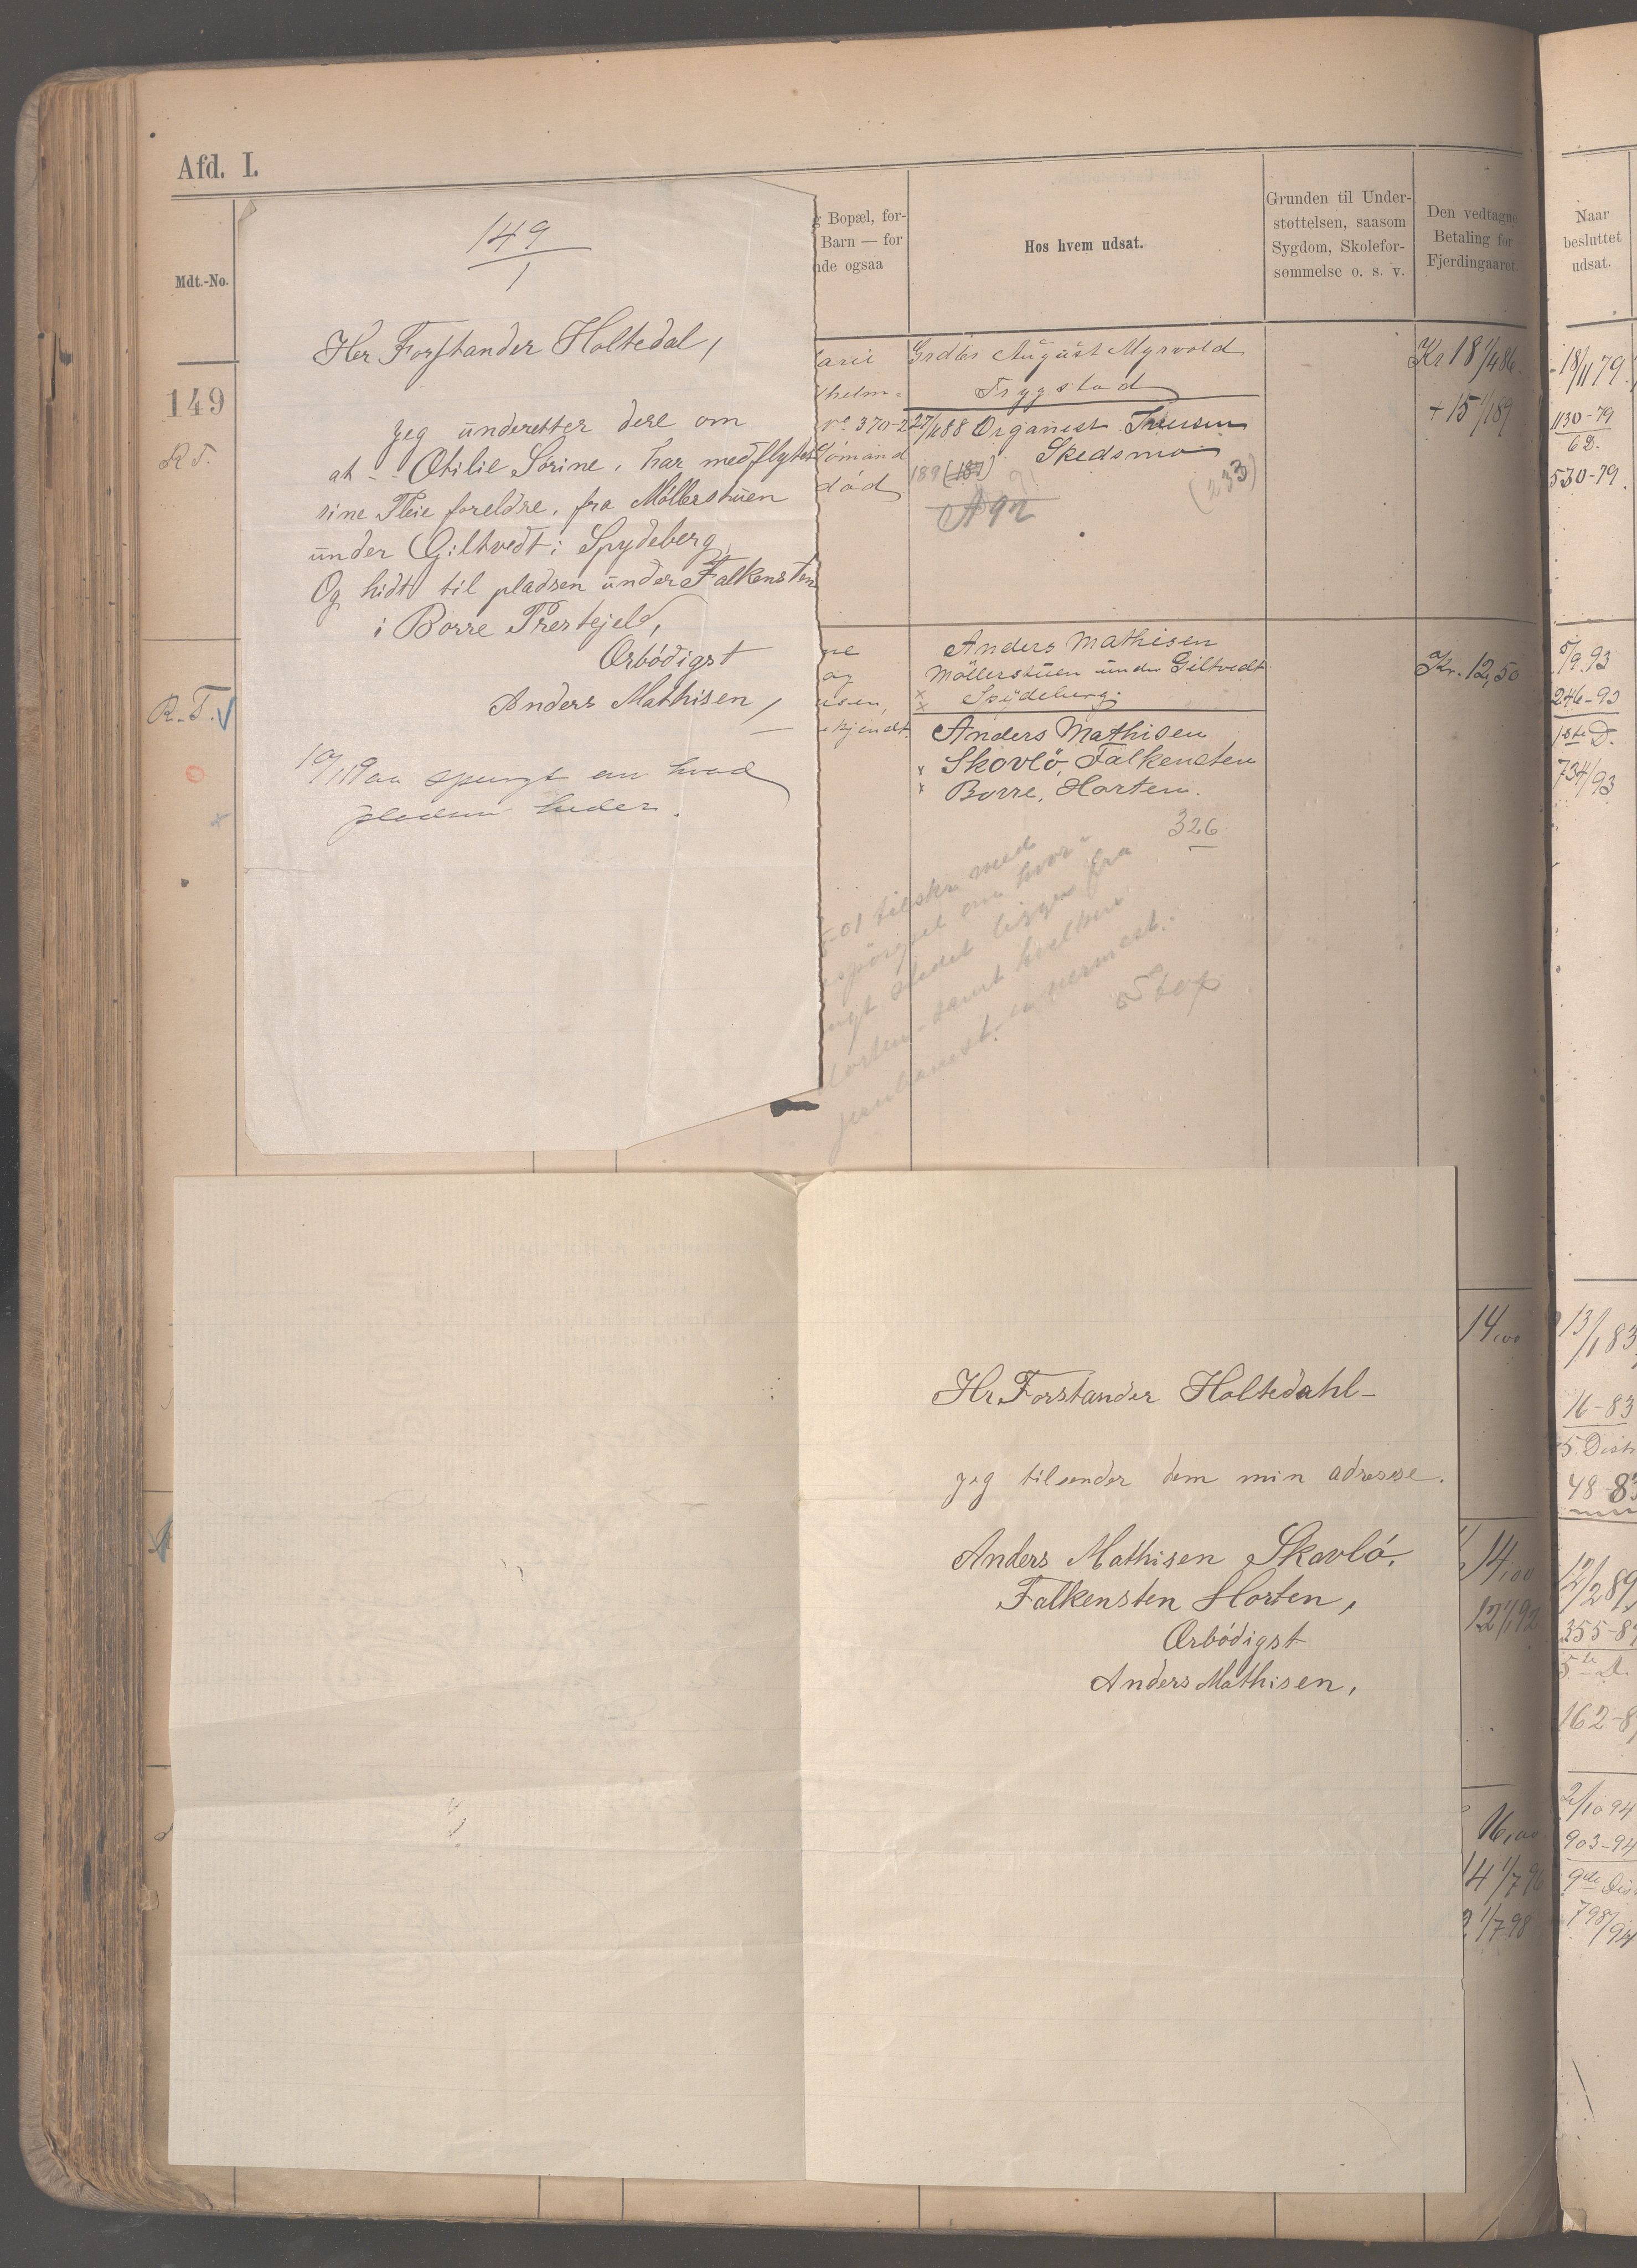 Afd. I.
Mdt.-No.
g Bopæl, for-
Barn — for
nde ogsaa
Hos hvem udsat.
Grunden til Under-
støttelsen, saasom
Sygdom, Skolefor-
sømmelse o. s. v.
Den vedtagne
Betaling for
Fjerdingaaret.
Naar
besluttet
udsat.
149
R T.
149
1
Her Forstander Holtedal,
jeg underetter dere om
at - Otilie Sørine, har medflyttet
sine Pleie foreldre, fra Möllerstuen
under Giltvedt i Spydeberg,
Og hidt til pladsen under Falkensten
i Borre Prestejeld,
Ærbödigst
Anders Mathisen,
10/1 19oo spurgt om hvad
pladsen heder.
arie
lhelm-
No 370-2
Sömand
död
Grdbr August Myrvold
Trygstad
27/488 Organist
Skedsmo
189 (187)
(233)
A 92
Kr 18 1/486
+ 15 1/189
18/11 79.
1130-79
6 D.
530-79.
R.-T. V
ne
og
usen,
kjendt.
Anders Mathisen
Möllerstuen under Giltvedt
Spydeberg.
Anders Mathisen
Skovlö, Falkensten
Borre, Horten.
326
Kr. 12,50
5/9 93
246-93
1ste D.
734/93
-01 tilskr. med
spörgsel om hvor-
ngt stedet ligger fra
Horten - samt hvilken
jernbanest. er nærmest.
14,00
13/1 83
16-83
5 Distr
48-83
Hr. Forstander Holtedahl-
jeg tilsender dem min adresse.
Anders Mathisen Skovlö.
Falkensten Horten,
Ærbödigst
Anders Mathisen,
14,00
12 1/1 92
12/2 89
355-89
5te D.
162-8
16,00
14 1/7 96
2 1/7 98
2/10 94
903-94
9de Dis
798/94